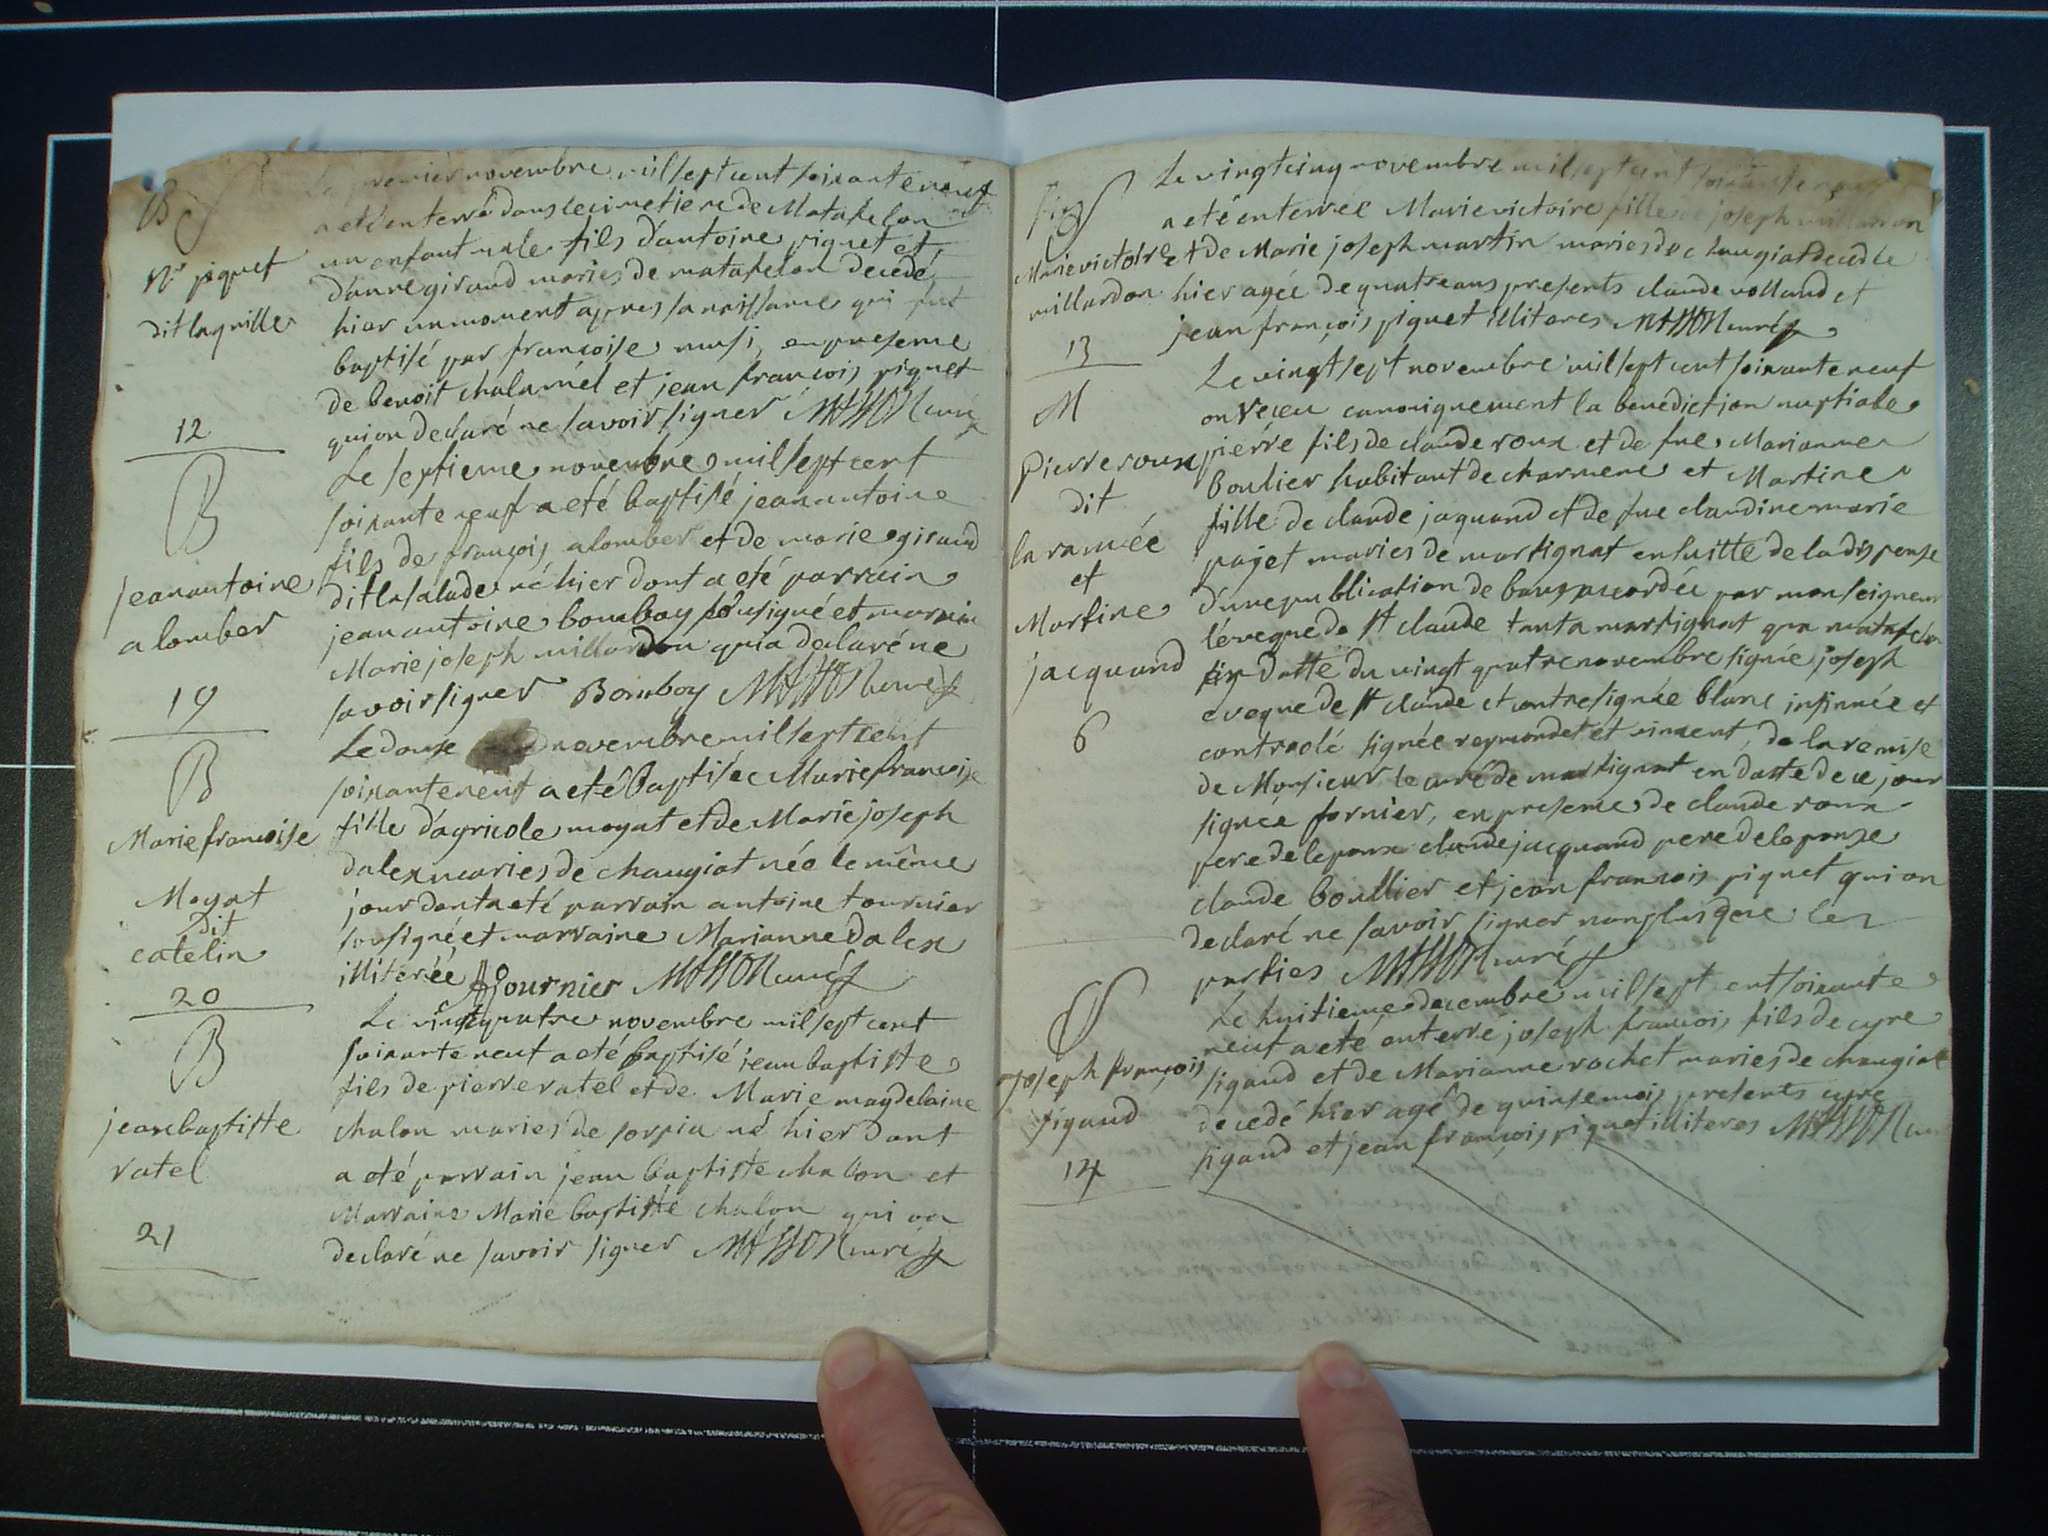 B S
Nr piquet
dit laquille
12
Le premier novembre mil sept cent soixante neuf
a eté enterré dans le cimetiere de Matafelon
un enfant male fils d'antoine piquet et
d'anne giraud maries de matafelon decedé
hier un moment apres sa naissance qui fut
baptisé par francoise musi, en presence
de benoit chalamel et jean francois piquet
qui on declaré ne savoir signer MASSON curé
B
jean antoine
alomber
19
Le septieme novembre mil sept cent
soixante neuf a eté baptisé jean antoine
fils de françois alomber et de marie giraud
dit lasalade né hier dont a eté parrain
jean antoine bomboy sousigné et marraine
Marie joseph millardon qui a declaré ne
savoir signer Bomboy MASSON curé
B
Marie francoise
Moyat
dit
catelin
20
Le douse novembre mil sept cent
soixante neuf a eté Baptisée Marie francoise
fille d'agricole moyat et de Marie joseph
dalex maries de chaugiat née le même
jour dont a eté parrain antoine tournier
sousigné et marraine Marianne dalex
illiterée A fournier MASSON curé
B
jean baptiste
vatel
21
Le vingt quatre novembre mil sept cent
soixante neuf a eté baptisé jean baptiste
fils de pierre vatel et de Marie magdelaine
chalon maries de sorpia né hier dont
a eté parrain jean baptiste chalon et
Marraine Marie baptiste chalon qui on
declaré ne savoir signer MASSON curé
S
Marie victoire
millardon
13
Le vingt cinq novembre mil sept cent soixante neuf
a eté enterrée Marie victoire fille de joseph millardon
et de Marie joseph martin maries de chaugiat decedée
hier agée de quatre ans presents claude volland et
jean françois piquet illiteres MASSON curé
M
pierre roux
dit
la ramée
et
Martine
jacquand
6
Le vingt sept novembre mil sept cent soixante neuf
on reçeu canoniquement la benediction nuptiale
pierre fils de claude roux et de fue Marianne
boulier habitant de charmene et Martine
fille de claude jaquand et de fue claudine marie
pajet maries de martignat ensuitte de la dispense
d'une publication de bans accordée par monseigneur
l'éveque de st claude tant a martignat qu'a matafelon
en datte du vingt quatre novembre signée joseph
eveque de st claude et contresignée blanc insinuée et
contrôlé signée reymondet et vincent, de la remise
de Monsieur le curé de martignat en datte de ce jour
signée fornier, en presence de claude roux
pere de lepoux claude jacquand pere de lepouse
claude boullier et jean francois piquet qui on
declaré ne savoir signer non plus que les
parties MASSON curé
S
joseph françois
sigaud
14
Le huitieme decembre mil sept cent soixante
neuf a eté enterré joseph francois fils de cyre
sigaud et de Marianne rochet maries de chaugiat
decedé hier agé de quinse mois presents cyre
sigaud et jean françois piquet illiteres MASSON curé